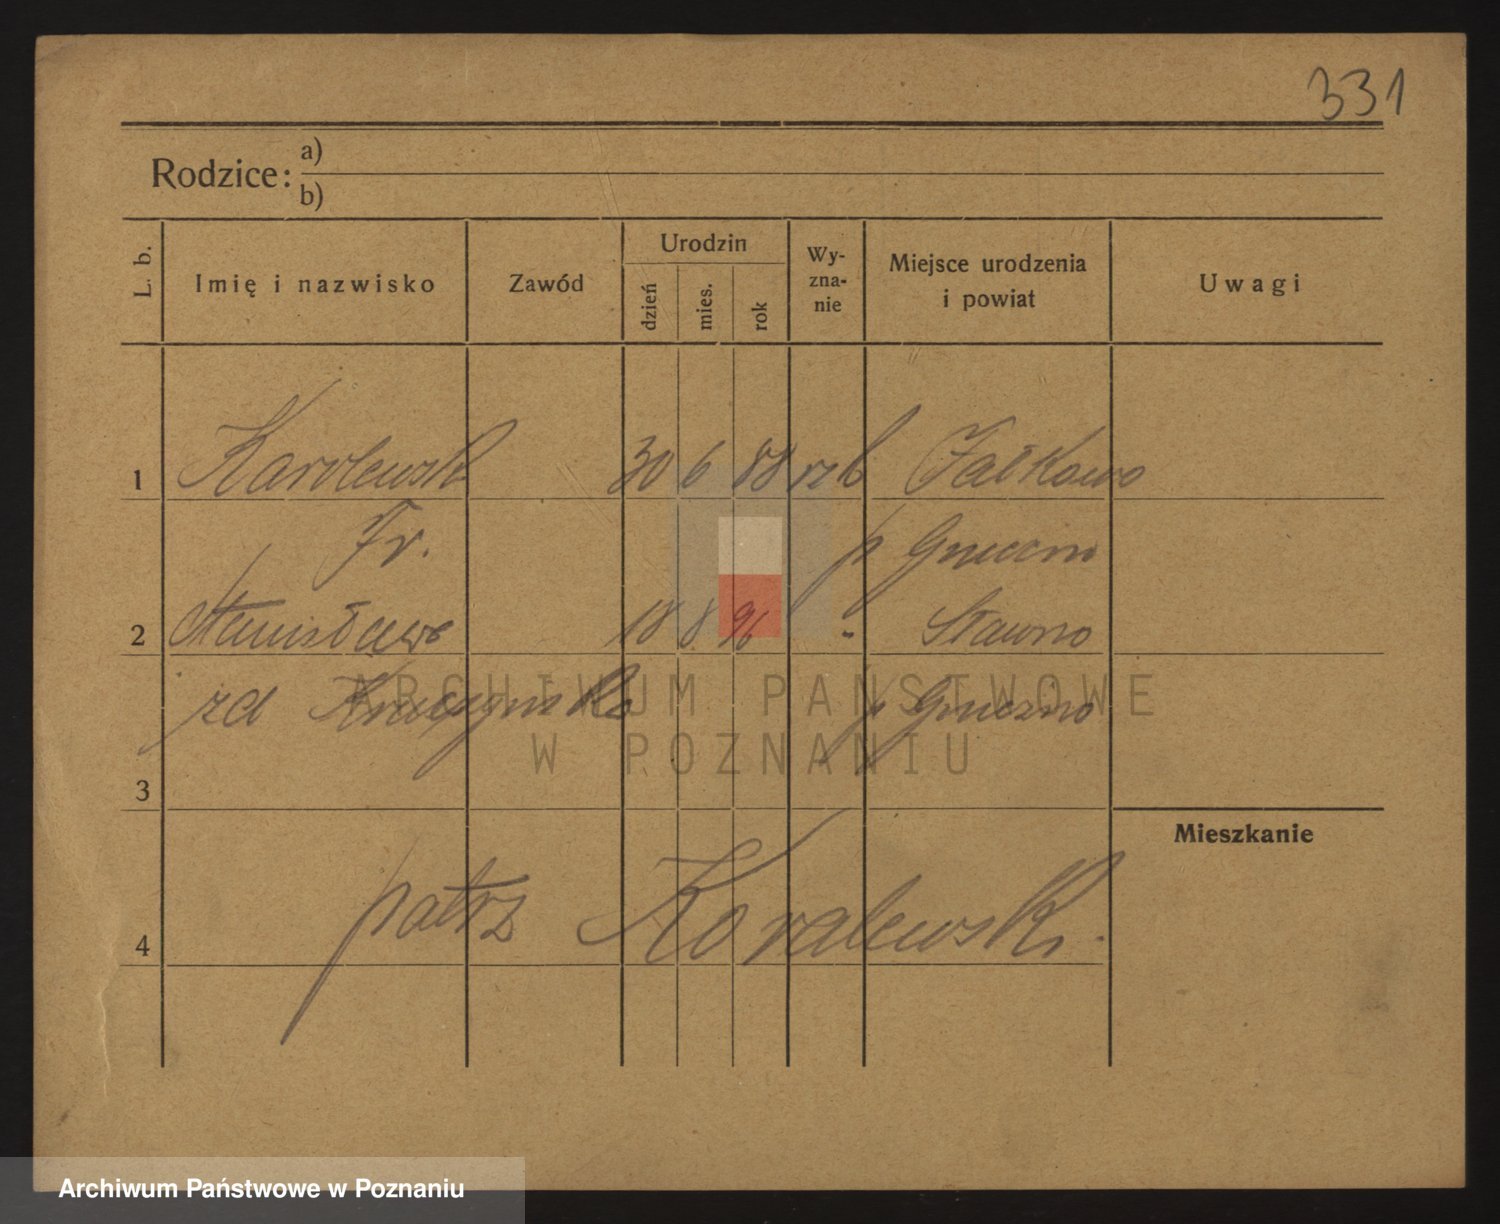 331
Rodzice: a)
b)
L. b. Imię i nazwisko Zawód Urodzin dzień mies. rok Wy-zna-nie Miejsce urodzenia i powiat Uwagi
1 Karolewsk 30 6 88 rz k Fałkowo
Fr. p Gniezno
2 Stanisława 18 8 96 " Sławno
zd p Gniezno
3
Mieszkanie
4 patrz Kowalewski.
ARCHIWUM PAŃSTWOWE
W POZNANIU
Archiwum Państwowe w Poznaniu